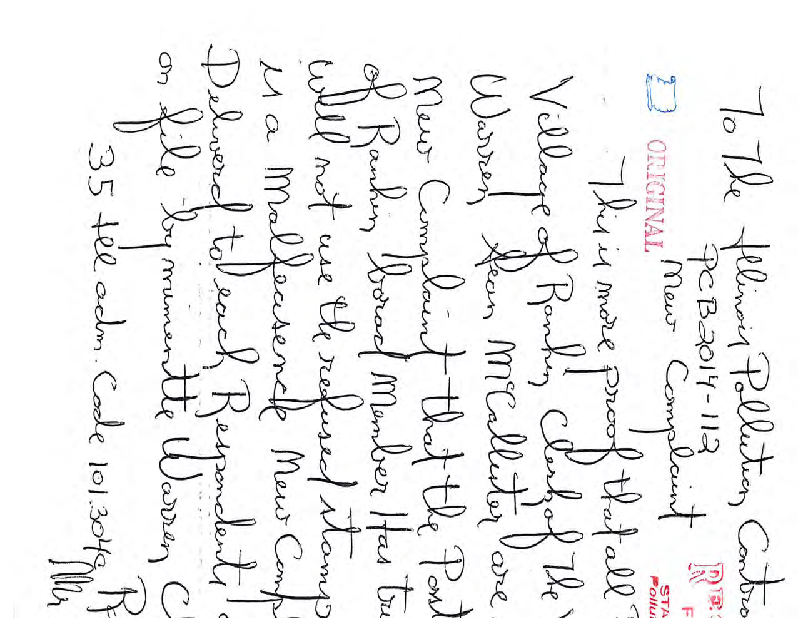 To The Illinois Pollution Contro
PCB2014-112
New Complaint
ORIGINAL
This is more proof that all
Village of Rankin, Clerk of the V
Warren, Jean McCalluter are
New Complaint that the Post
of Rankin, borad Member Has tru
will not use the refused stamp
is a Malfeasence New Comp
Deliverd to each Respondents
on file by Warren, C
35 Ill adm. Code 101.304
Mr
RE
STA
Pollu